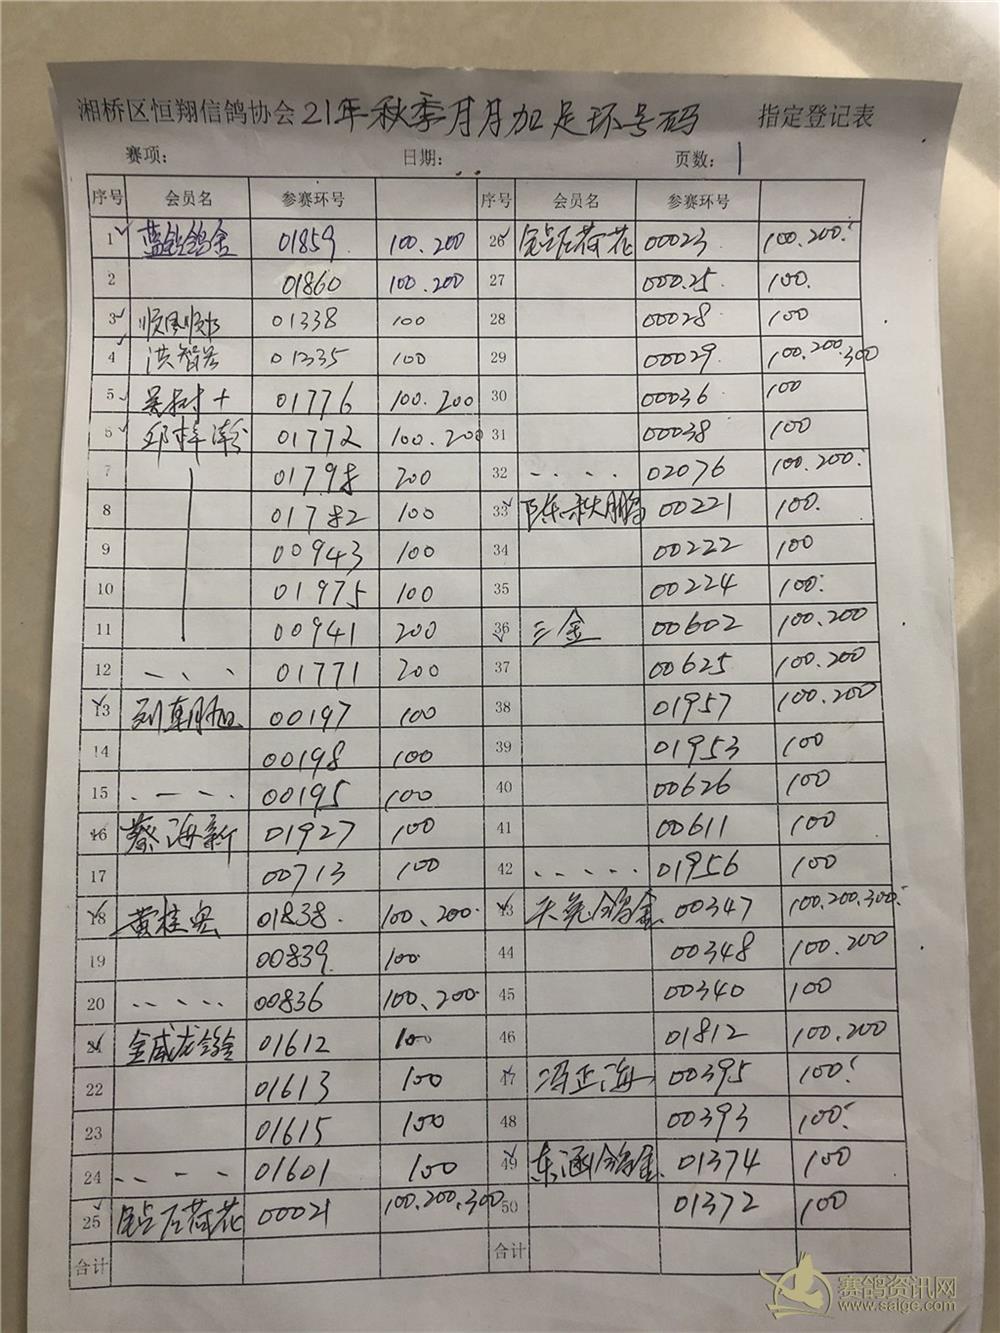 湘桥区恒翔信鸽协会21年秋季月月加足环号码 指定登记表
赛项: 日期: 页数: 1
序号 会员名 参赛环号 序号 会员名 参赛环号
1 蓝钻鸽舍 01859 100.200 26 钻石荷花 00023 100.200
2 01860 100.200 27 00025 100
3 顺风顺水 01338 100 28 00028 100
4 洪智 01335 100 29 00029 100.200.300
5 吴树 01776 100.200 30 00036 100
5 邱梓瀚 01772 100.200 31 00038 100
7 01798 200 32 02076 100.200
8 01782 100 33 陈秋鹏 00221 100
9 00943 100 34 00222 100
10 01975 100 35 00224 100
11 00941 200 36 三金 00602 100.200
12 01771 200 37 00625 100.200
13 刘朝旭 00197 100 38 01957 100.200
14 00198 100 39 01953 100
15 00195 100 40 00626 100
16 蔡海新 01927 100 41 00611 100
17 00713 100 42 01956 100
18 黄桂 01838 100、200 43 鸽舍 00347 100.200.300
19 00839 100 44 00348 100.200
20 00836 100、200 45 00340 100
21 金威龙鸽舍 01612 100 46 01812 100.200
22 01613 100 47 冯正海 00395 100
23 01615 100 48 00393 100
24 01601 100 49 东涵鸽舍 01374 100
25 钻石荷花 00021 100.200.300 50 01372 100
合计 合计
赛鸽资讯网
www.saige.com